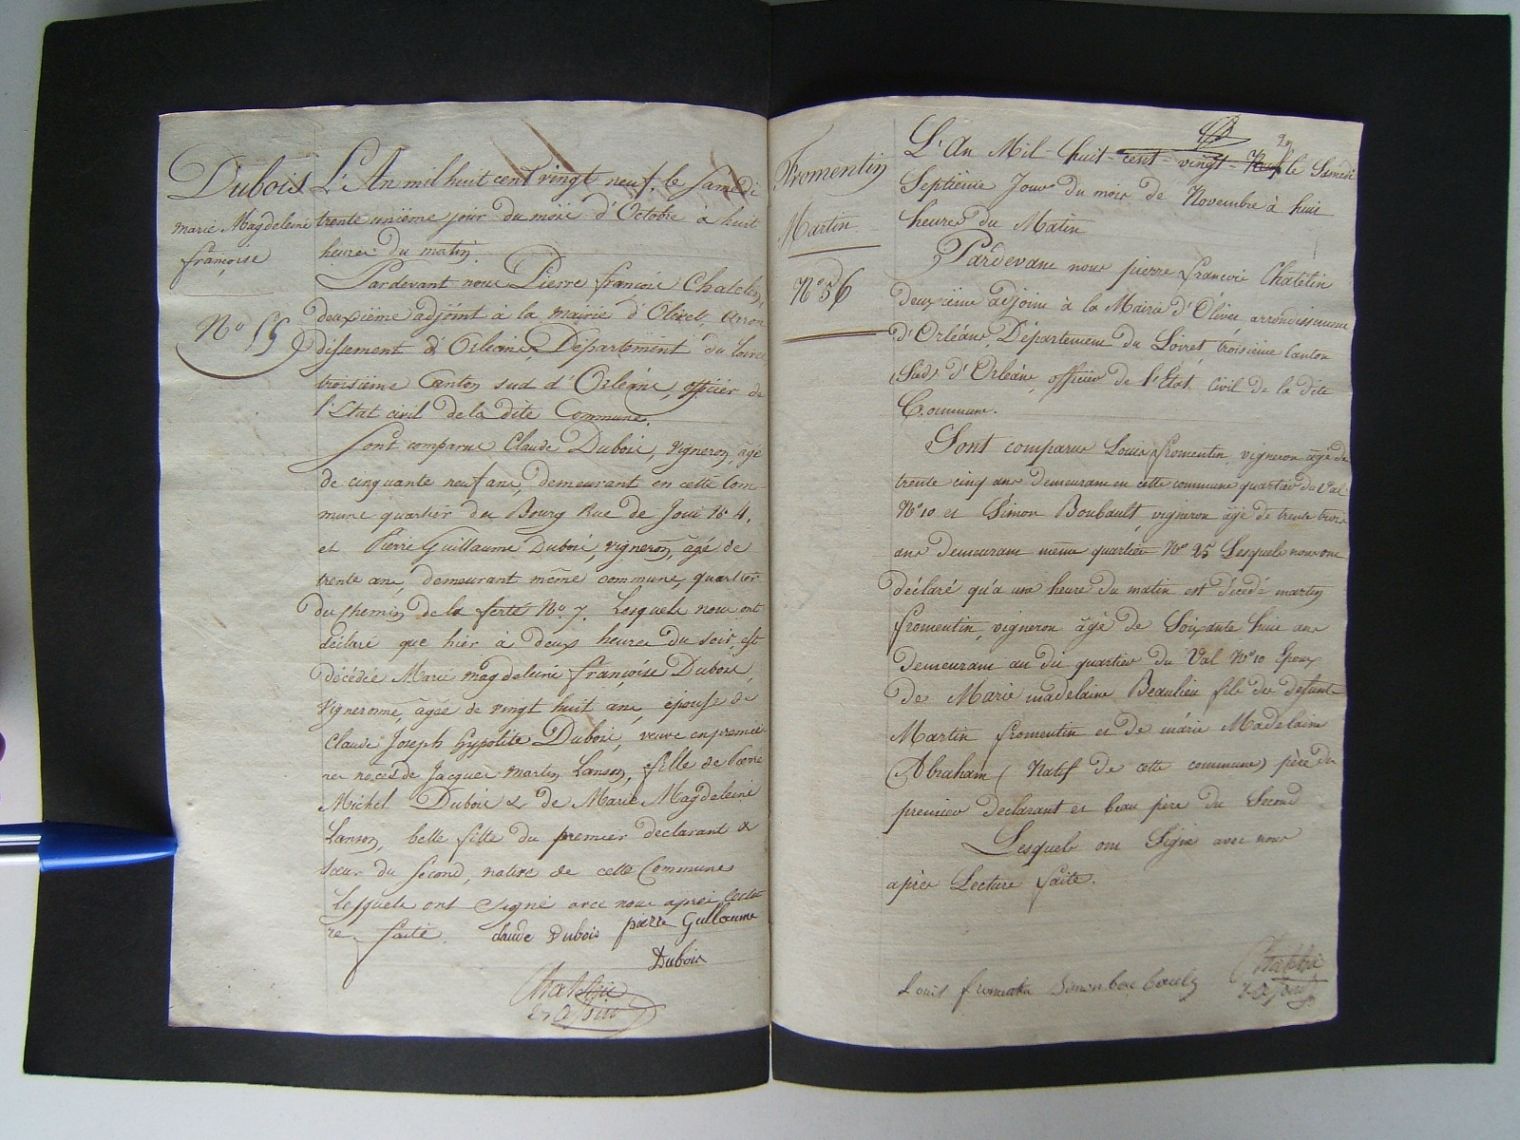 Dubois
marie Magdeleine
françoise
N° 55
L'An mil huit cent vingt neuf, le Samedi
trente unième jour du mois d'Octobre à huit
heures du matin.
Pardevant nous Pierre françois Chatelin,
deuxième adjoint à la mairie d'Olivet, arron
dissement d'Orléans, Département du Loiret
troisième Canton sud d'Orléans, officier de
l'Etat civil de la dite Commune.
Sont comparus Claude Dubois, vigneron, âgé
de cinquante neuf ans, demeurant en cette Com-
mune quartier du Bourg Rue de Joui N° 4,
et Pierre Guillaume Dubois, vigneron, âgé de
trente ans, demeurant même commune, quartier
du chemin de la ferté N° 7. Lesquels nous ont
déclaré que hier à deux heures du soir, est
décédée Marie magdeleine françoise Dubois,
vigneronne, âgée de vingt huit ans, épouse de
Claude Joseph hypolite Dubois, veuve en premiè
res noces de Jacques martin Lanson, fille de
Michel Dubois & de Marie Magdeleine
Lanson, belle fille du premier declarant &
sœur du second, native de cette Commune
Lesquels ont signé avec nous après lectu
re faite. claude Dubois pierre Guillaume
Dubois
Fromentin
Martin
N° 56
L'An Mil huit cent vingt Neuf le Samedi
Septième Jour du mois de Novembre à huit
heures du Matin
Pardevant nous pierre françois Chatelin
deuxième adjoint à la Mairie d'Olivet arrondissement
d'Orléans, Département du Loiret, troisième Canton
Sud d'Orléans, officier de l'Etat Civil de la dite
Commune.
Sont comparus Louis fromentin vigneron âgé de
trente cinq ans demeurant en cette commune quartier du Val
N° 10 et Simon Boubault, vigneron âgé de trente trois
ans demeurant même quartier N° 25 Lesquels nous ont
déclaré qu'a une heure du matin est décédé martin
fromentin, vigneron âgé de Soixante huit ans
demeurant au dit quartier du Val N° 10 Epoux
de Marie madelaine Beaulieu fils des defunts
Martin fromentin et de marie Madelaine
Abraham (Natif de cette commune) père du
premier declarant et beau père du Second
Lesquels ont Signé avec nous
après Lecture faite.
Louis fromentin Simon bou bault